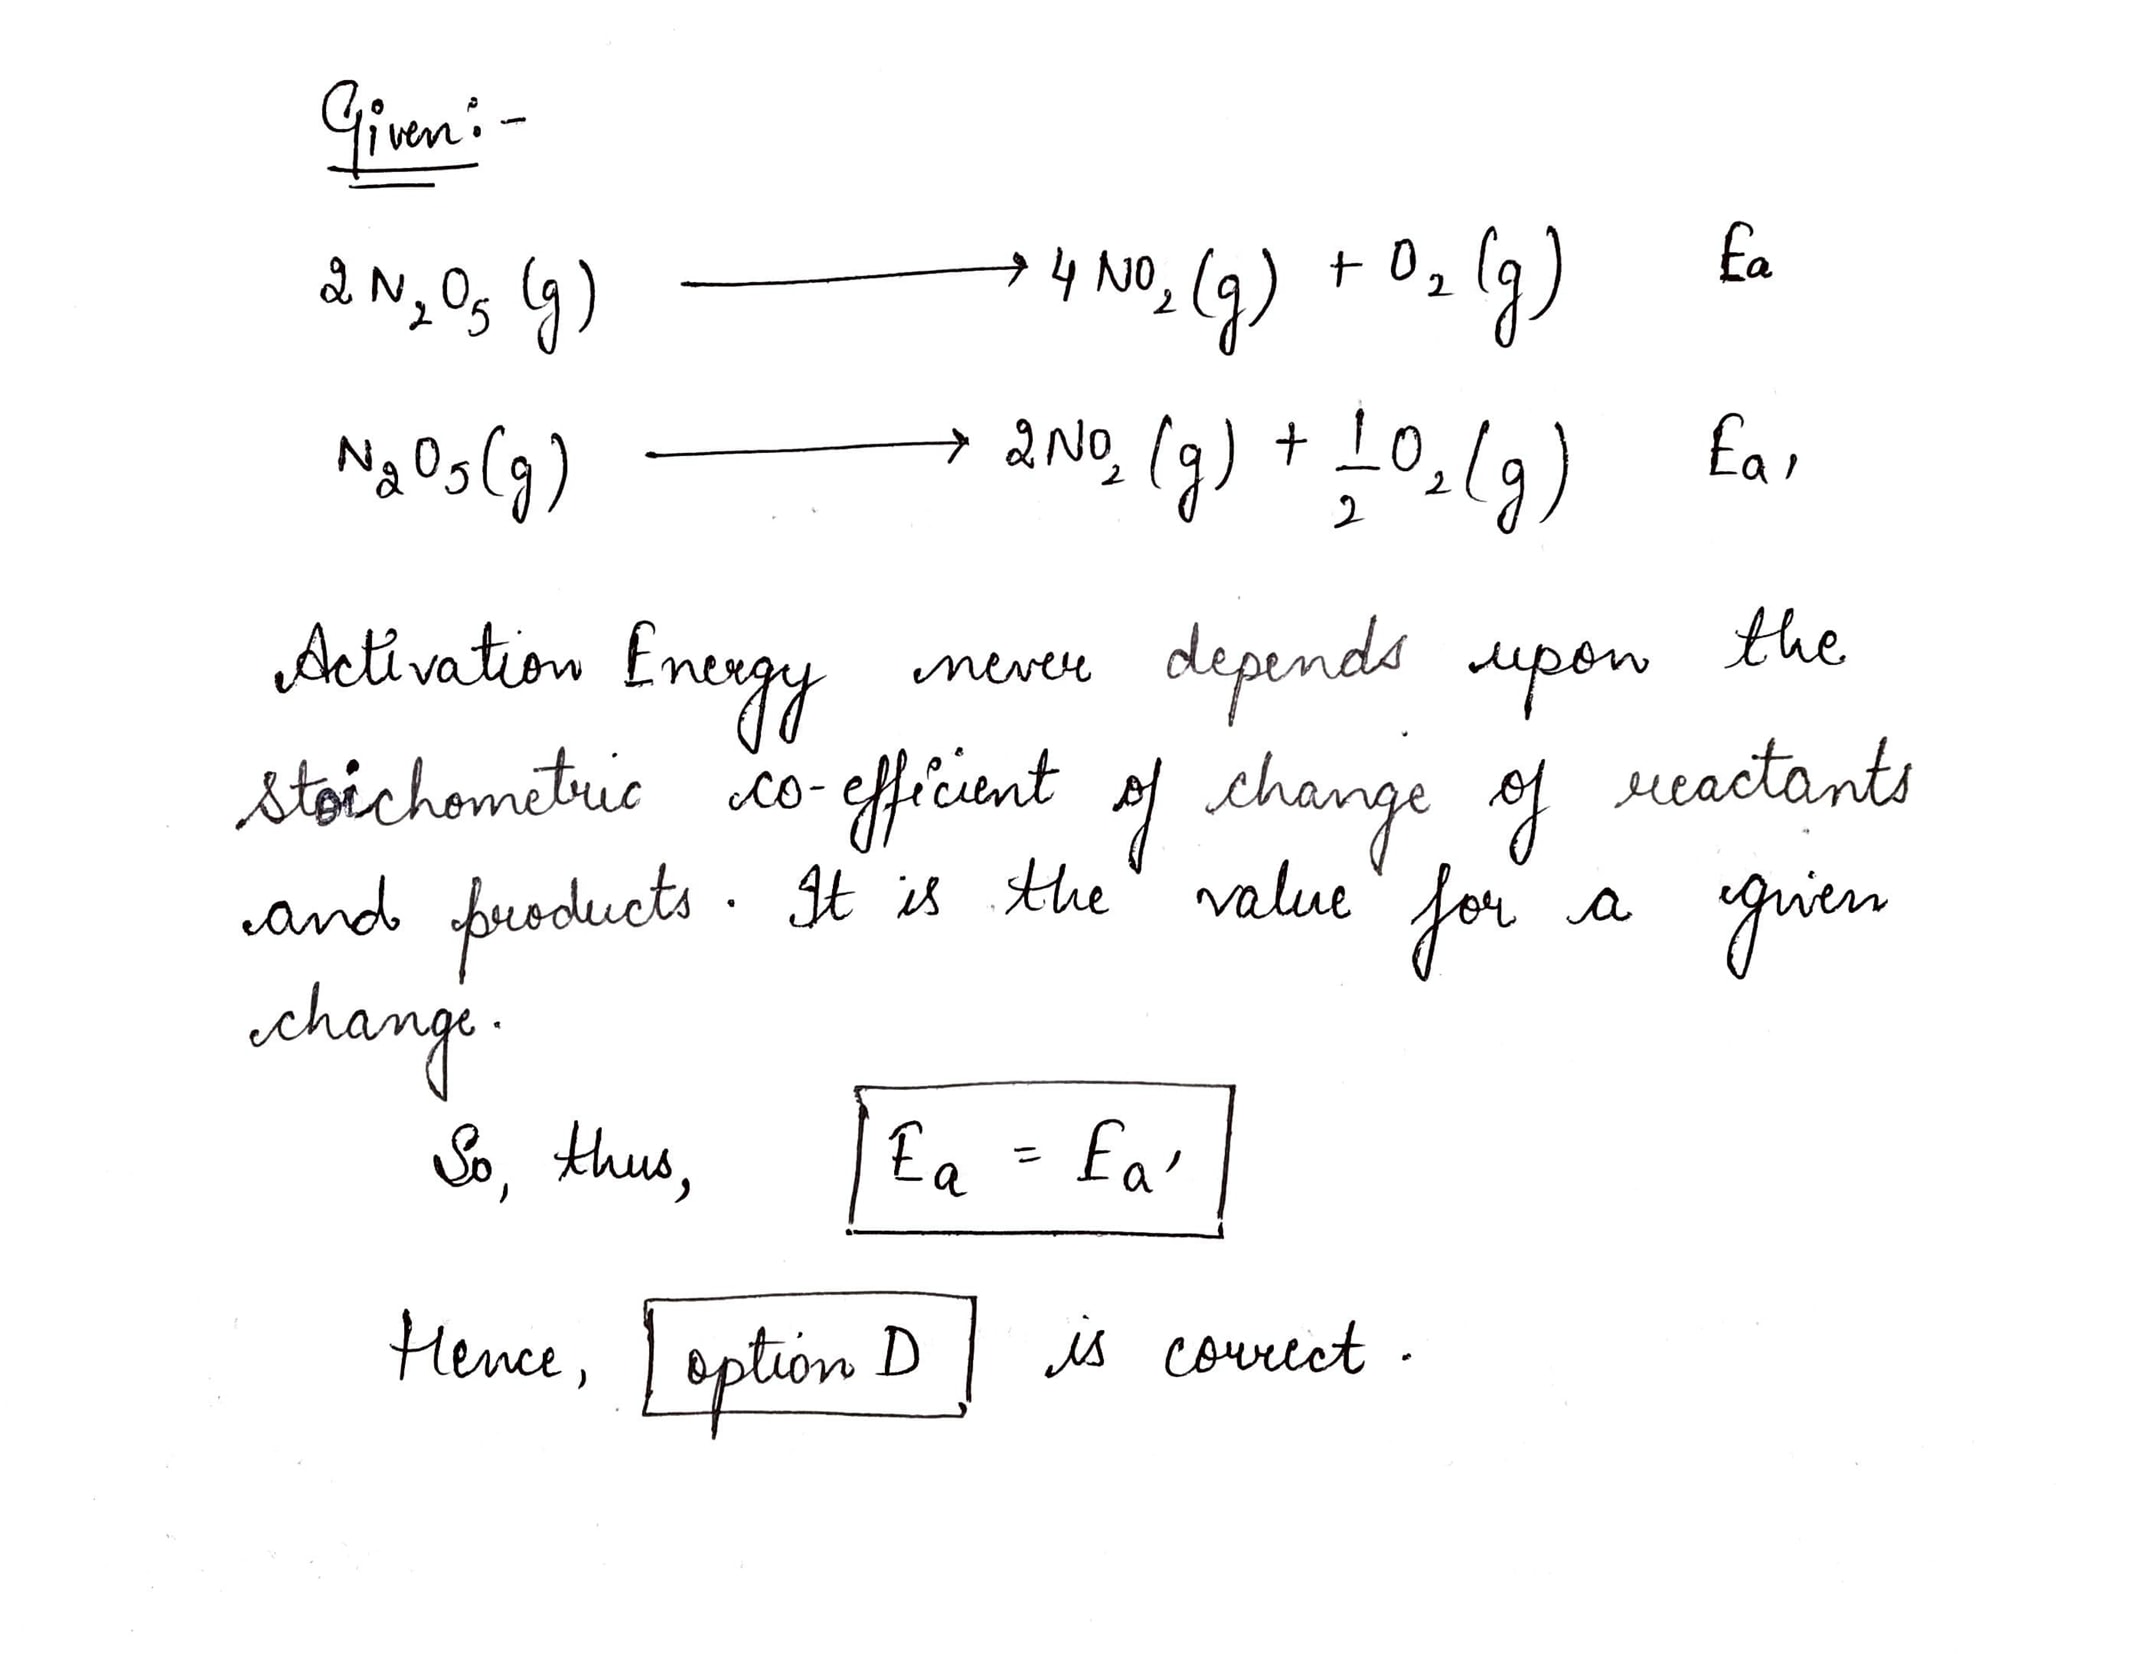 Given:-
2N₂O₅(g) ⟶ 4NO₂(g) + O₂(g) Ea
N₂O₅(g) ⟶ 2NO₂(g) + 1/2 O₂(g) Ea'
Activation Energy never depends upon the
stoichometric co-efficient of change of reactants
and products. It is the value for a given
change.
So, thus, Ea = Ea'
Hence, option D is correct.